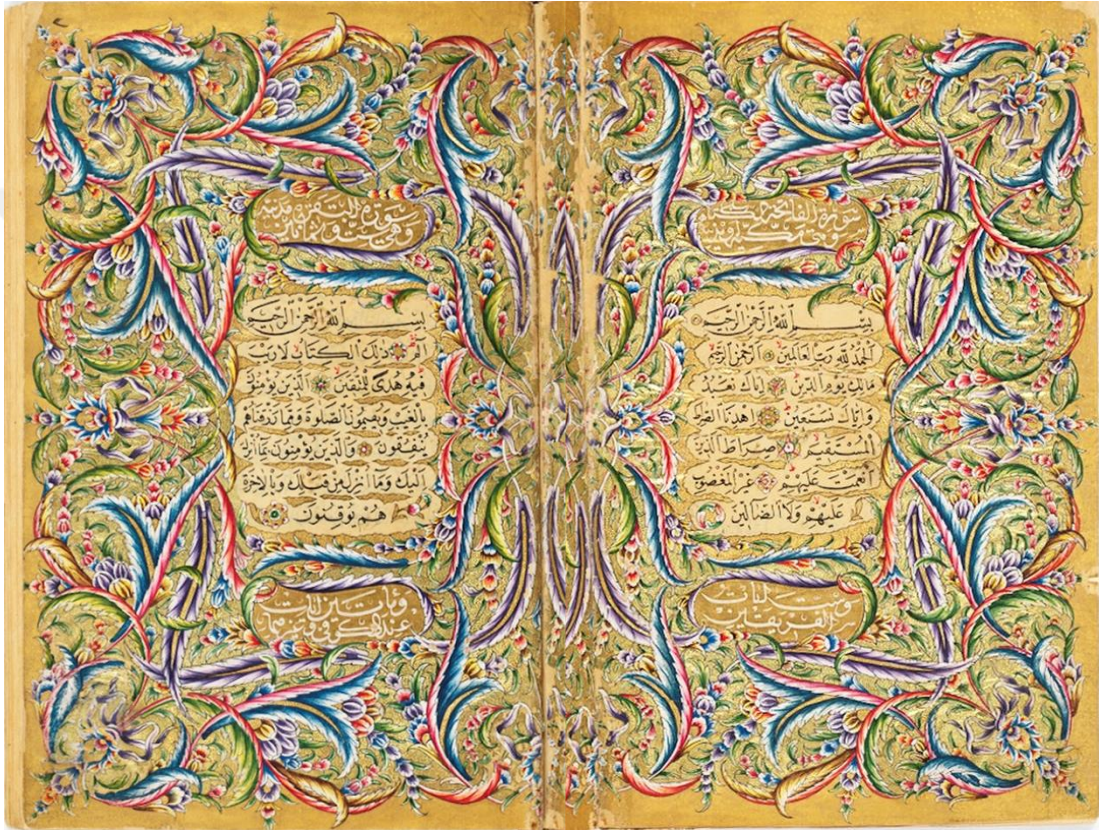 سورة الفاتحة الكتاب
بسم الله الرحمن الرحيم
الحمد لله رب العالمين الرحمن الرحيم
مالك يوم الدين اياك نعبد
واياك نستعين اهدنا الصراط
المستقيم صراط الذين
انعمت عليهم غير المغضوب
عليهم ولا الضالين
سورة البقرة مدنية
وهي ست وثمانون
بسم الله الرحمن الرحيم
الم ذلك الكتاب لا ريب
فيه هدى للمتقين الذين يؤمنون
بالغيب ويقيمون الصلوة ومما رزقناهم
ينفقون والذين يؤمنون بما انزل
اليك وما انزل من قبلك وبالاخرة
هم يوقنون
ومايتين ايات